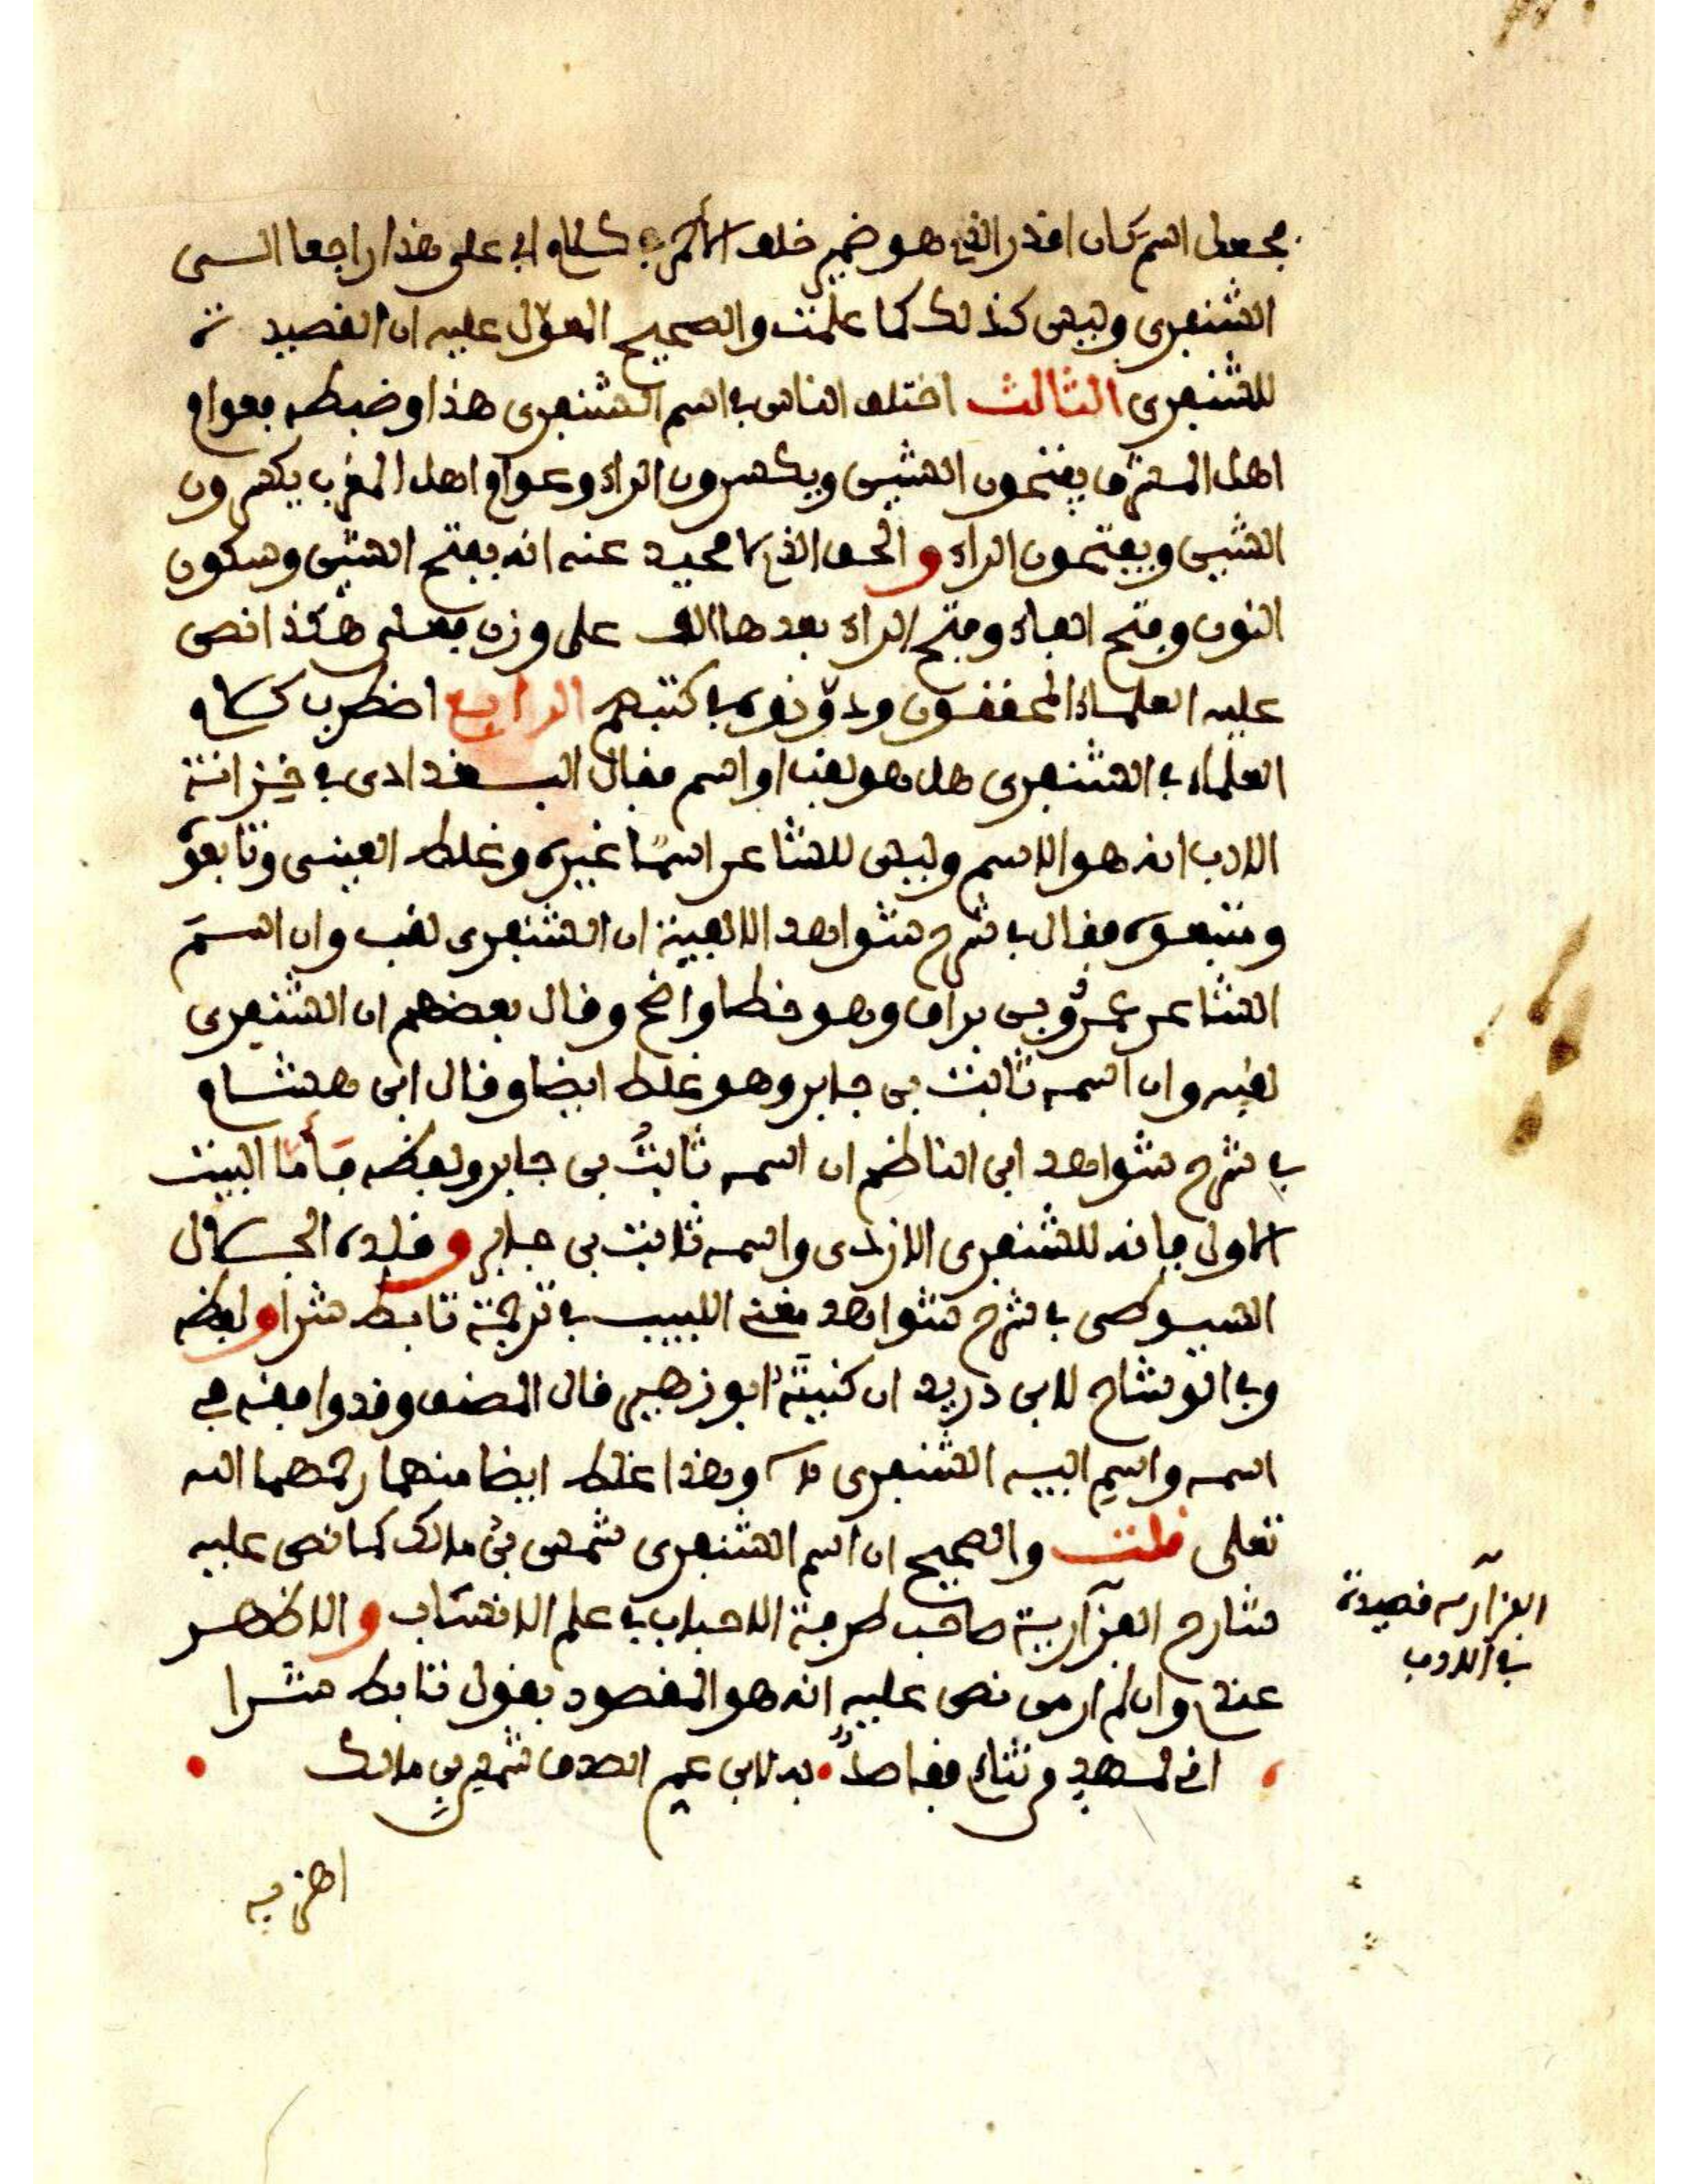 فجعل اسم كان اقدر الذي هو ضمير خلف الأحمر في كلام أبي على هذا راجعا الــى
الشنفرى وليس كذلك كما علمت والصحيح المعوّل عليه ان القصيدة
للشنفرى الثالث اختلف الناس في اسم الشنفرى هذا وضبطه فعوام
اهل المشرق يفتحون الشين ويكسرون الراء وعوام اهل المغرب يكسرون
الشين ويفتحون الراء والحق الذي لا محيد عنه انه بفتح الشين وسكون
النون وفتح الفاء وفتح الراء بعدها الف على وزن فعنلى هكذا نص
عليه العلماء المحققون ودوّنوه في كتبهم الرابع اضطرب كلام
العلماء في الشنفرى هل هو لقب او اسم فقال البغدادى في خزانة
الادب انه هو الاسم وليس للشاعر اسمًا غيره وغلط العينى وتابعوه
ومتبعوه فقال في شرح شواهد الالفية ان الشنفرى لقب وان اسم
الشاعر عمرو بن براق وهو خطا واضح وقال بعضهم ان الشنفرى
لقبه وان اسمه ثابت بن جابر وهو غلط ايضا وقال ابن هشام
في شرح شواهد ابن الناظم ان اسمه ثابتُ بن جابر ولفظه فأما البيت
الاول فانه للشنفرى الازدى واسمه ثابت بن جابر وقلده الجلال
السيوطى في شرح شواهد مغنى اللبيب في ترجمة تابط شرا ولفظه
وفي الوشاح لابن دريد ان كنيته ابو زهير قال المصنف وقد وافقه في
اسمه واسم ابيه الشنفرى وهذا غلط ايضا منهما رحمهما الله
تعلى قلت والصحيح ان اسم الشنفرى شمس بن مالك كما نص عليه
شارح الفزآرية صاحب طرفة الاحباب في علم الانساب والاظهر
عندي وان لم ار من نص عليه انه هو المقصود بقول تابط شرا
اني لمهد من ثنائي فقاصدٌ • به لابن عم الصدق شمس بن مالك
اهز به
الفزآرية قصيدة
في الادب